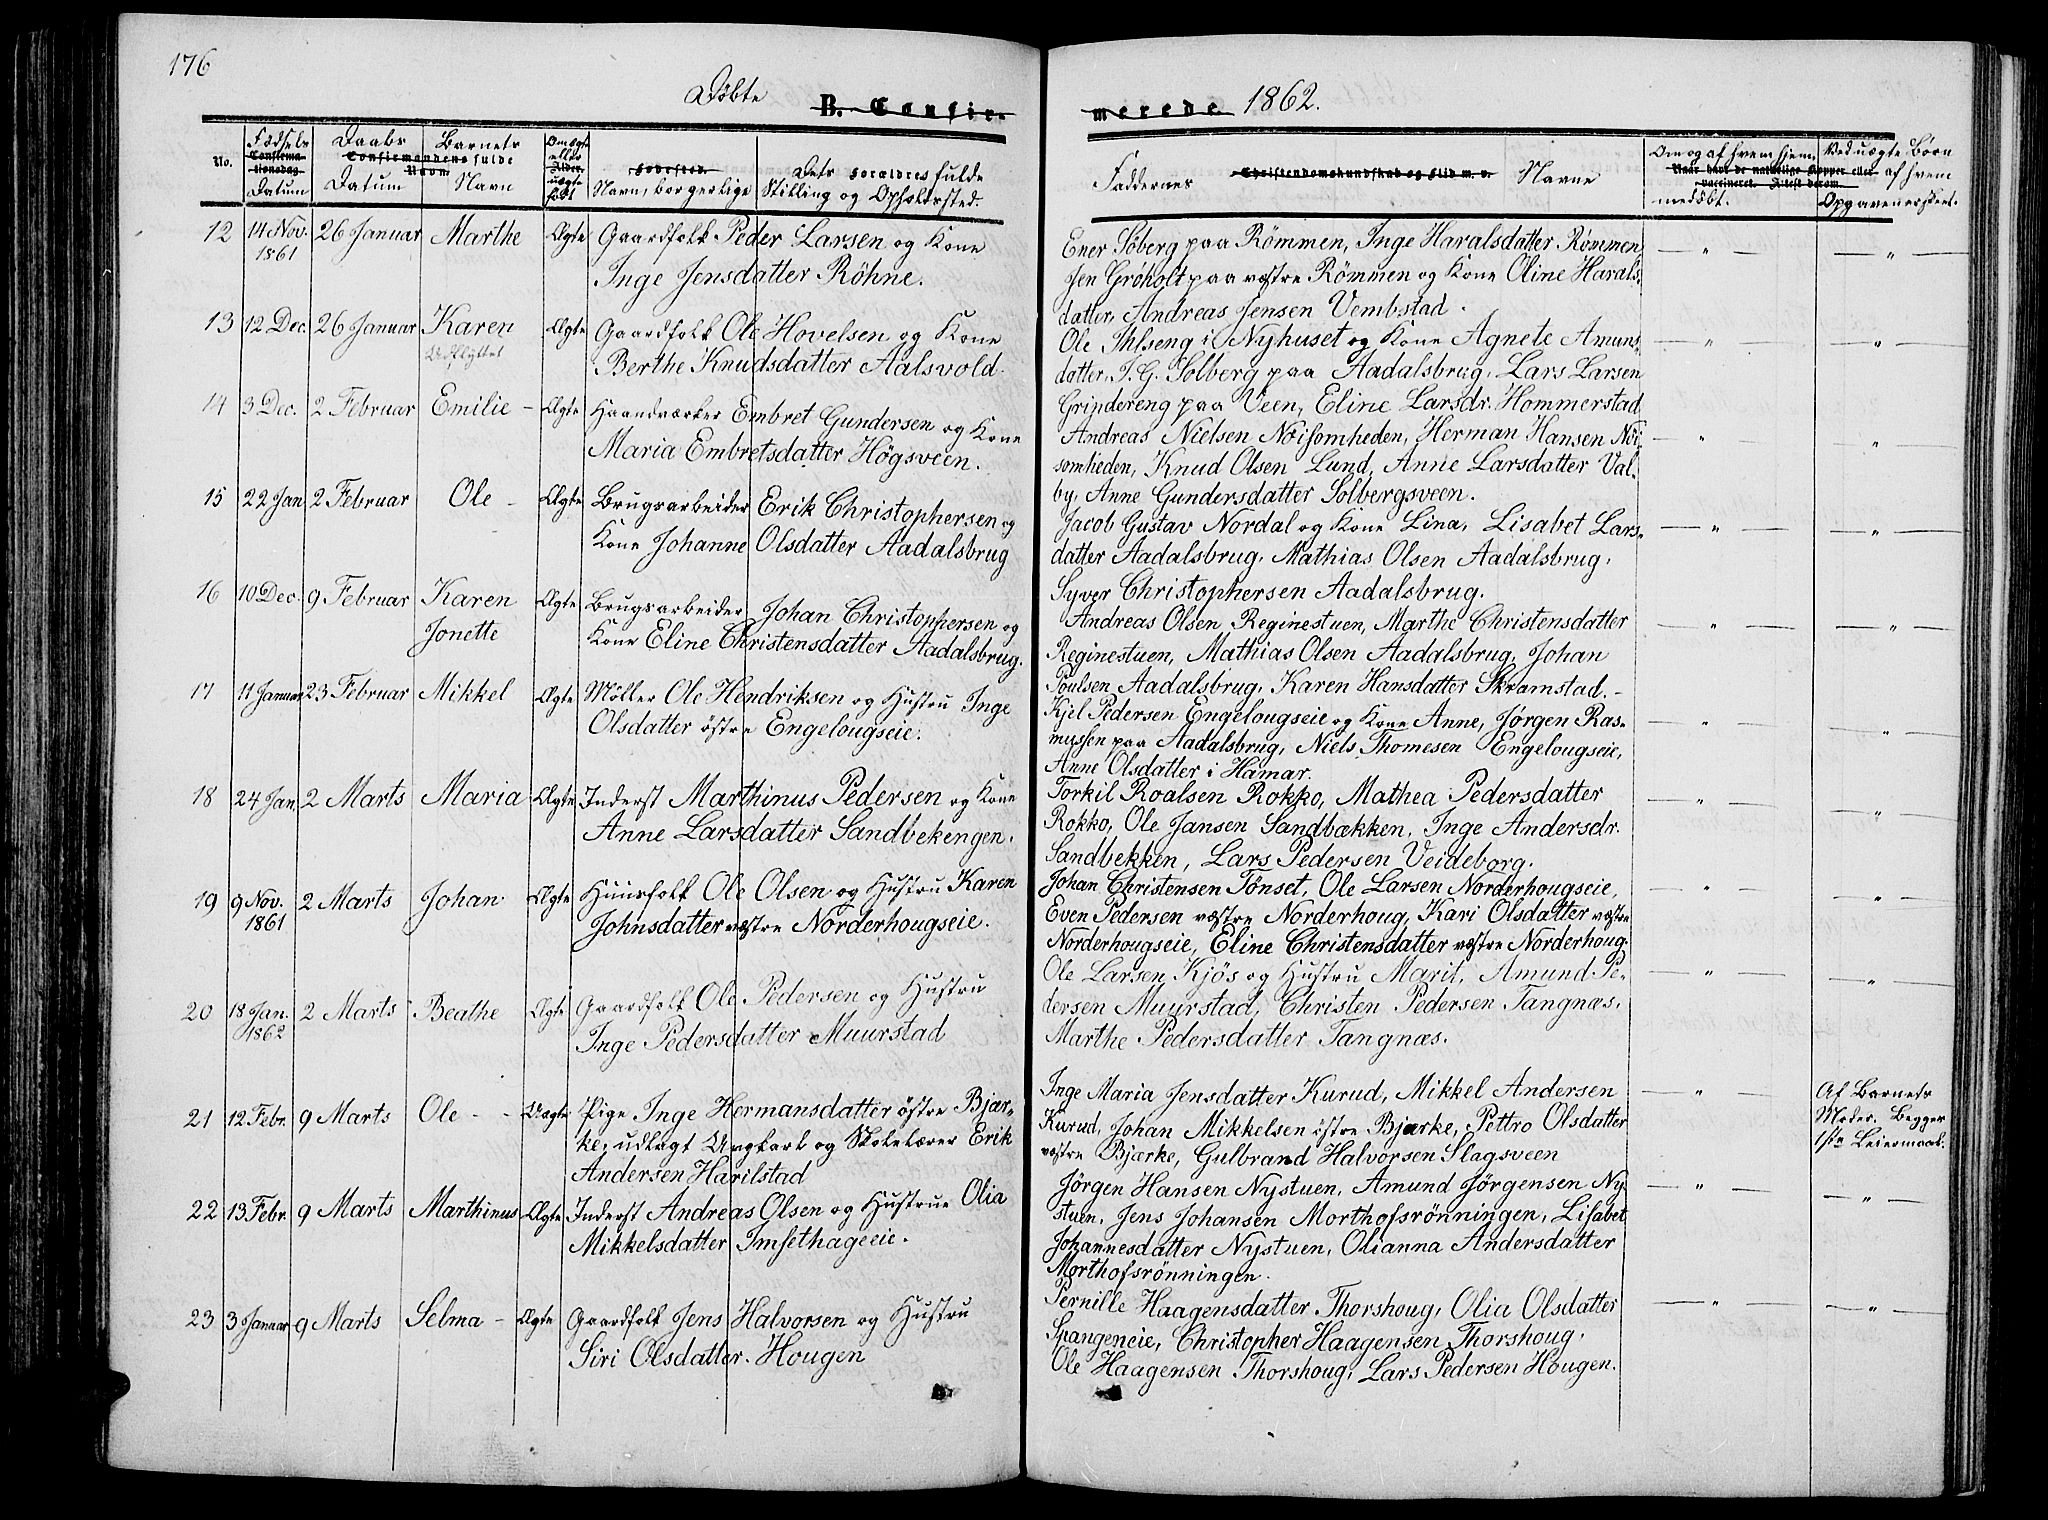 176
Döbte B. Confir-
No. Fødsels Datum Daabs Datum Barnets Navn Om ægte eller uægte født Navn, borgerlige Stilling og Opholdssted.
Confirmandens fulde Navn
Dets Forældres fulde
12 14 Nov. 1861 26 Januar Marthe Ægte Gaardfolk Peder Larsen og Kone
Inge Jensdatter Röhne.
13 12 Dec. 26 Januar Karen Ægte Gaardfolk Ole Hovelsen og Kone
Udflyttet
Berthe Knudsdatter Aalsvold.
14 3 Dec. 2 Februar Emilie - Ægte Haandværker Embret Gundersen og Kone
Maria Embretsdatter Högsveen.
15 22 Jan 2 Februar Ole - Ægte Brugsarbeider Erik Christophersen og
Kone Johanne Olsdatter Aadalsbrug
16 10 Dec. 9 Februar Karen Ægte Brugsarbeider Johan Christophersen og
Jonette Kone Eline Christensdatter Aadalsbrug.
17 11 Januar 23 Februar Mikkel Ægte Møller Ole Hendriksen og Hustru Inge
Olsdatter östre Engelougseie.
18 24 Jan 2 Marts Maria Ægte Inderst Marthinus Pedersen og Kone
Anne Larsdatter Sandbekengen.
19 9 Nov. 2 Marts Johan Ægte Huusfolk Ole Olsen og Hustru Karen
1861 Johnsdatter væstre Norderhougseie.
20 18 Jan. 2 Marts Beathe Ægte Gaardfolk Ole Pedersen og Hustru
1862 Inge Pedersdatter Muurstad
21 12 Febr. 9 Marts Ole - - Uægte Pige Inge Hermansdatter östre Bjær-
ke, udlagt Ungkarl og Skolelærer Erik
Andersen Harilstad
22 13 Febr. 9 Marts Marthinus Ægte Inderst Andreas Olsen og Hustrue Olia
Mikkelsdatter Imsethageeie.
23 3 Januar 9 Marts Selma - Ægte Gaardfolk Jens Halvorsen og Hustru
Siri Olsdatter. Hougen
merede 1862.
Faddernes Christendomskundskab og Flid m. v. Navne
Om og af hvem hjem- Ved uægte Börn
Naar havt de naturlige Kopper eller af hvem
vaccineret. Attest derom.
medöbt. Opgaven er skeet.
Ener Söberg paa Römmen, Inge Haralsdatter Römmen, — " — — " —
Jen Gröholt paa væstre Römmen og Kone Oline Harals-
datter, Andreas Jensen Vembstad.
Ole Ihlseng i Nyhuset og Kone Agnete Amuns- — " — — " —
datter, I. G. Solberg paa Aadalsbrug, Lars Larsen
Grindereng paa Veen, Eline Larsdr. Hommerstad
Andreas Nielsen Noisomheden, Herman Hansen Noi- — " — "
somheden, Knud Olsen Lund, Anne Larsdatter Val-
by, Anne Gundersdatter Solbergsveen.
Jacob Gustav Nordal og Kone Lina, Lisabet Lars- — " — — " —
datter Aadalsbrug, Mathias Olsen Aadalsbrug,
Syver Christophersen Aadalsbrug.
Andreas Olsen Reginestuen, Marthe Christensdatter — " — — " —
Reginestuen, Mathias Olsen Aadalsbrug, Johan
Poulsen Aadalsbrug, Karen Hansdatter Skramstad. -
Kjel Pedersen Engelougseie og Kone Anne, Jörgen Ras- — " — — " —
mussen paa Aadalsbrug, Niels Thomesen Engelougseie,
Anne Olsdatter i Hamar.
Torkil Roalsen Rokko, Mathea Pedersdatter — " — — " —
Rokko, Ole Jansen Sandbækken, Inge Andersdr.
Sandbekken, Lars Pedersen Veideborg.
Johan Christensen Tönset, Ole Larsen Norderhougseie, — " — — " —
Even Pedersen væstre Norderhoug, Kari Olsdatter væstre
Norderhougseie, Eline Christensdatter væstre Norderhoug.
Ole Larsen Kjös og Hustru Marit, Amund Pe- — " — — " —
dersen Muurstad, Christen Pedersen Tangnæs,
Marthe Pedersdatter Tangnæs.
Inge Maria Jensdatter Kurud, Mikkel Andersen — " — Af Barnets
Kurud, Johan Mikkelsen östre Bjærke, Pettro Olsdatter Moder. Begges
væstre Bjærke, Gulbrand Halvorsen Slagsveen 1ste Leiermaal.
Jörgen Hansen Nystuen, Amund Jörgensen Ny- — " — — " —
stuen, Jens Johansen Morthofsrönningen, Lisabet
Johannesdatter Nystuen, Olianna Andersdatter
Morthofsrönningen.
Pernille Haagensdatter Thorshoug, Olia Olsdatter — " — — " —
Spangeneie, Christopher Haagensen Thorshoug,
Ole Haagensen Thorshoug, Lars Pedersen Hougen.